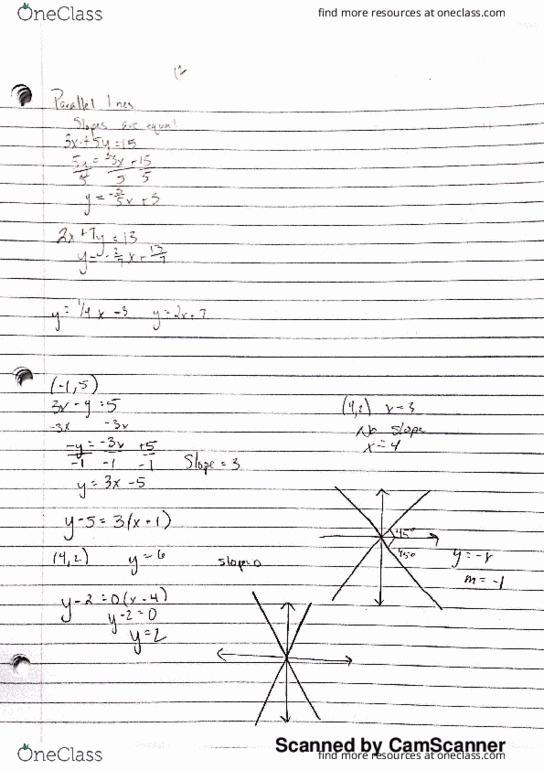 OneClass
find more resources at oneclass.com
12
Parallel lines
Slopes are equal
3x+5y=15
5y = -3x +15
5 5 5
y = -3/5x +3
2x+7y=13
y=-2/7x+13/7
y= 1/4x -3 y=2x+7
(-1,5)
3x-y=5
-3x -3x
-y = -3x +5
-1 -1 -1
Slope = 3
y = 3x -5
y-5 = 3(x+1)
(4,2) y=6 slope 0
y-2=0(x-4)
y-2=0
y=2
(4,2) x=3
No slope
x=4
45°
45°
y=-x
m=-1
Scanned by CamScanner
OneClass
find more resources at oneclass.com